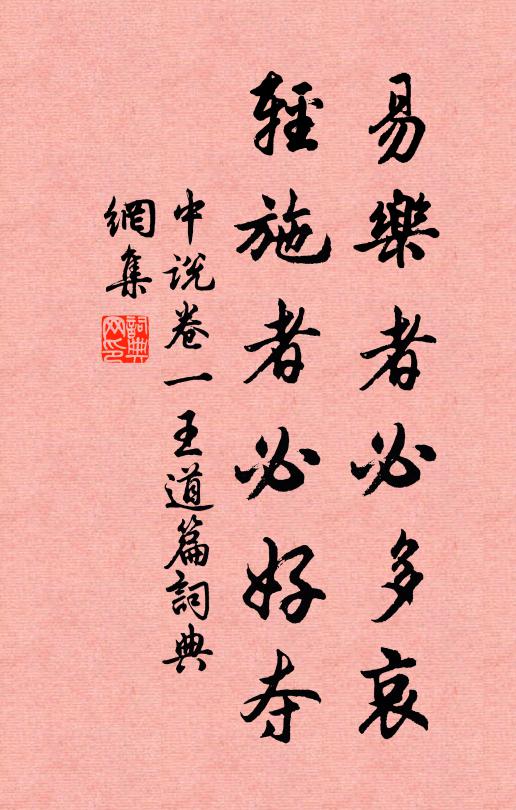 易樂者必多哀
輕施者必好夺
中说卷一王道篇詞典
網集
詞典网印